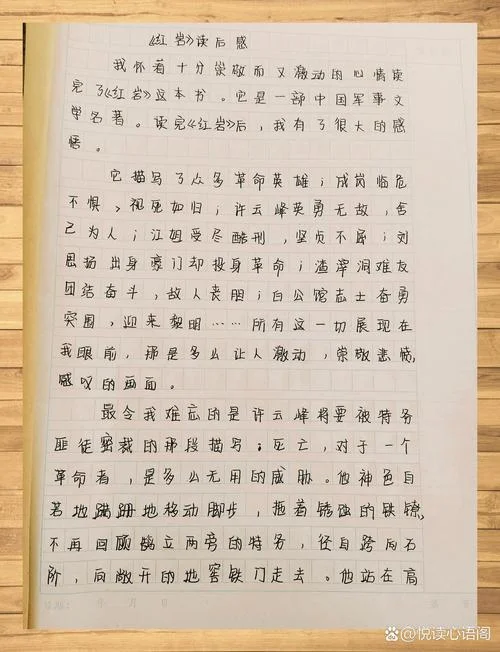 《红岩》读后感
我怀着十分崇敬而又激动的心情读
完了《红岩》这本书。它是一部中国军事文
学名著。读完《红岩》后,我有了很大的感
悟。
它描写了众多革命英雄;成岗临危
不惧、视死如归;许云峰英勇无敌,舍
己为人;江姐受尽酷刑,坚贞不屈;刘
思扬出身豪门却投身革命;渣滓洞难友
团结奋斗,敌人丧胆;白公馆志士奋勇
突围,迎来黎明……所有这一切展现在
我眼前,那是多么让人激动,崇敬悲愤,
感叹的画面。
最令我难忘的是许云峰将要被特务
匪徒密裁的那段描写;死亡,对于一个
革命者,是多么无用的威胁。他神色自
若地蹒跚地移动脚步,拖着锈蚀的铁镣,
不再回顾鹄立两旁的特务,径自跨向石
阶,向敞开的地窖铁门走去。他站在高
年 月 日
悦读心语阁